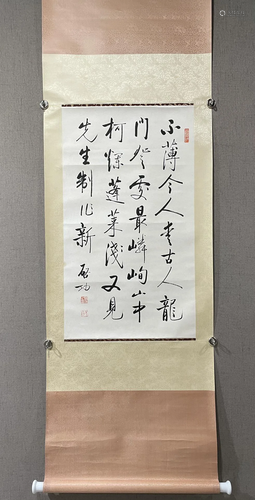 不薄今人爱古人龍
門登處最嶙峋山中
柯爛蓬萊淺又見
先生制作新
启功